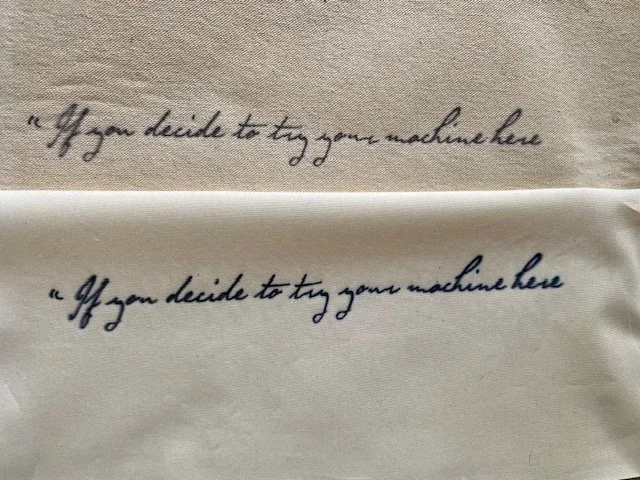 “ If you decide to try your machine here
“ If you decide to try your machine here